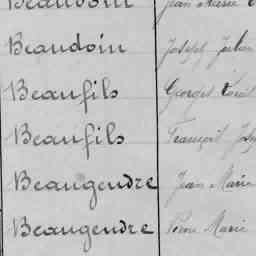 Beaudoin Jean Marie
Beaudoin Joseph Julien
Beaufils Georges Louis
Beaufils François
Beaugendre Jean Marie
Beaugendre Pierre Marie